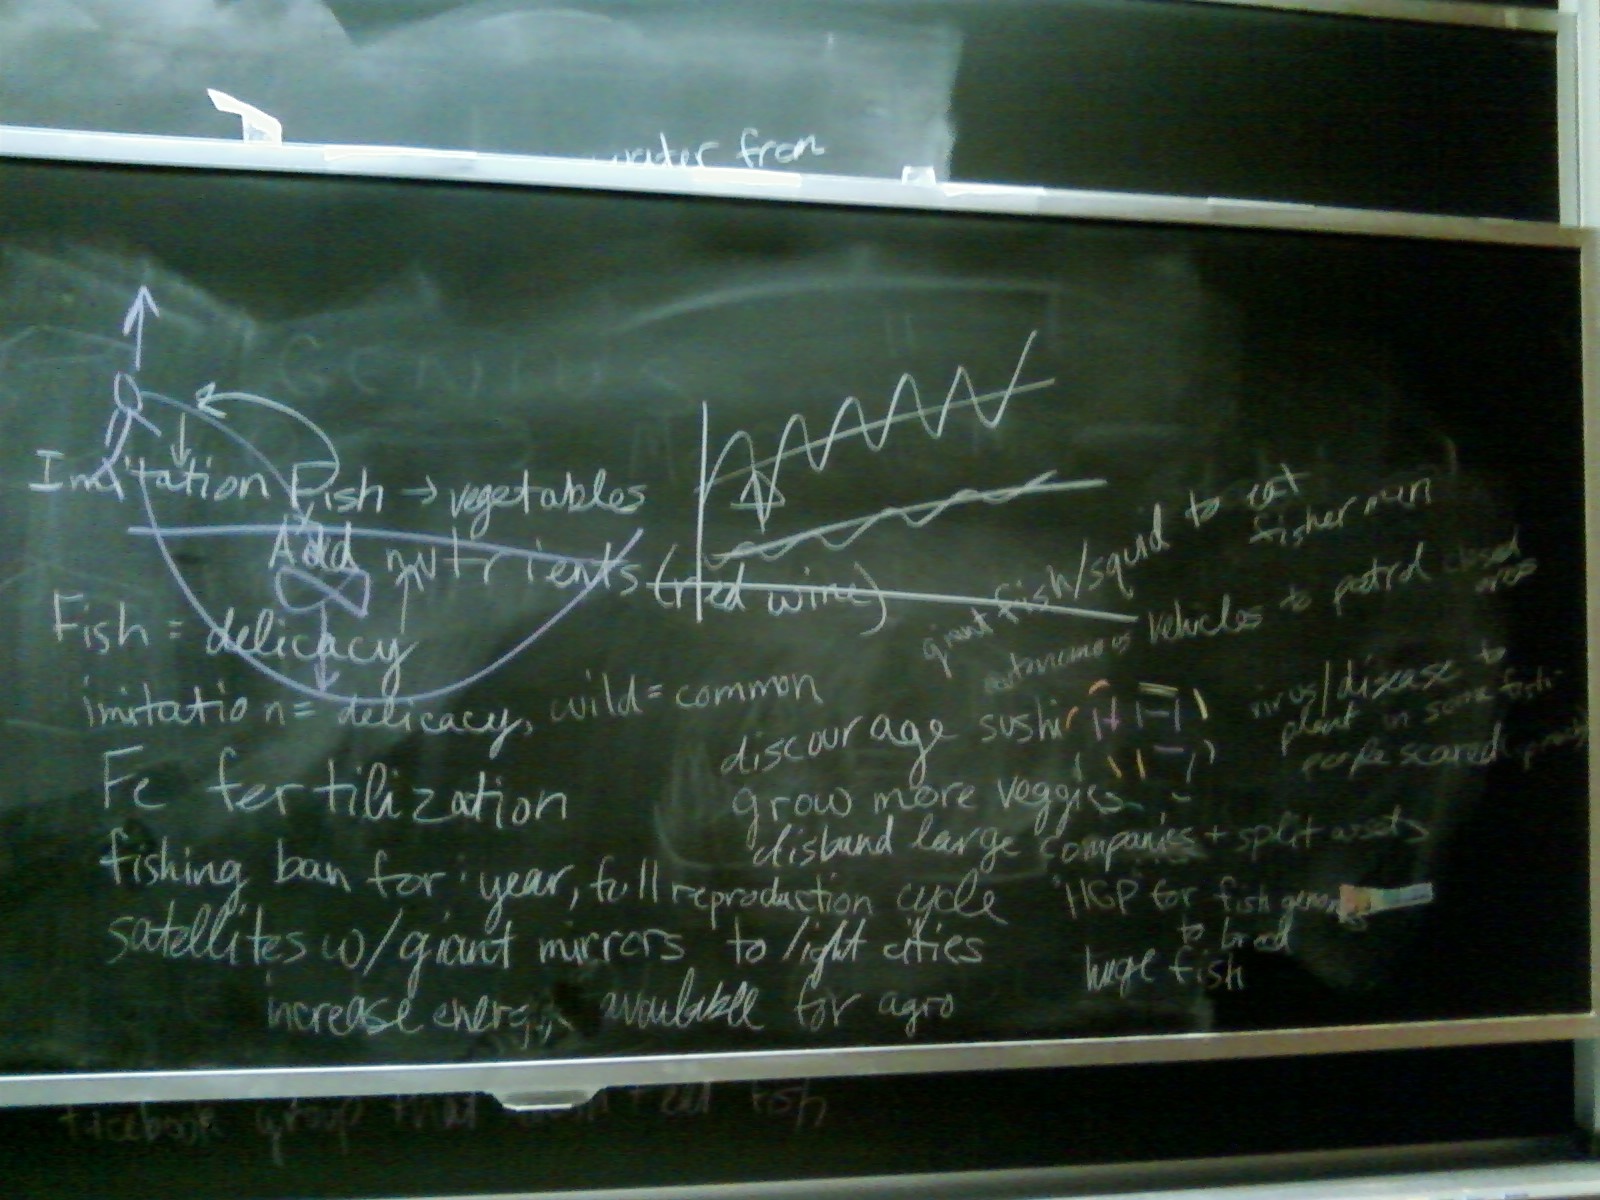 water from
GENIUS
Imitation Fish → vegetables
Add nutrients (red wine)
Fish = delicacy
imitation = delicacy, wild = common
Fe fertilization
fishing ban for year, full reproduction cycle
satellites w/giant mirrors to light cities
increase energy available for agro
giant fish/squid to eat
fisherman
autonomous vehicles to patrol closed
areas
discourage sushi
grow more veggies
disband large companies + split assets
virus/disease to
plant in some fish -
people scared
"HGP" for fish genomes
to breed
huge fish
facebook group that don't eat fish